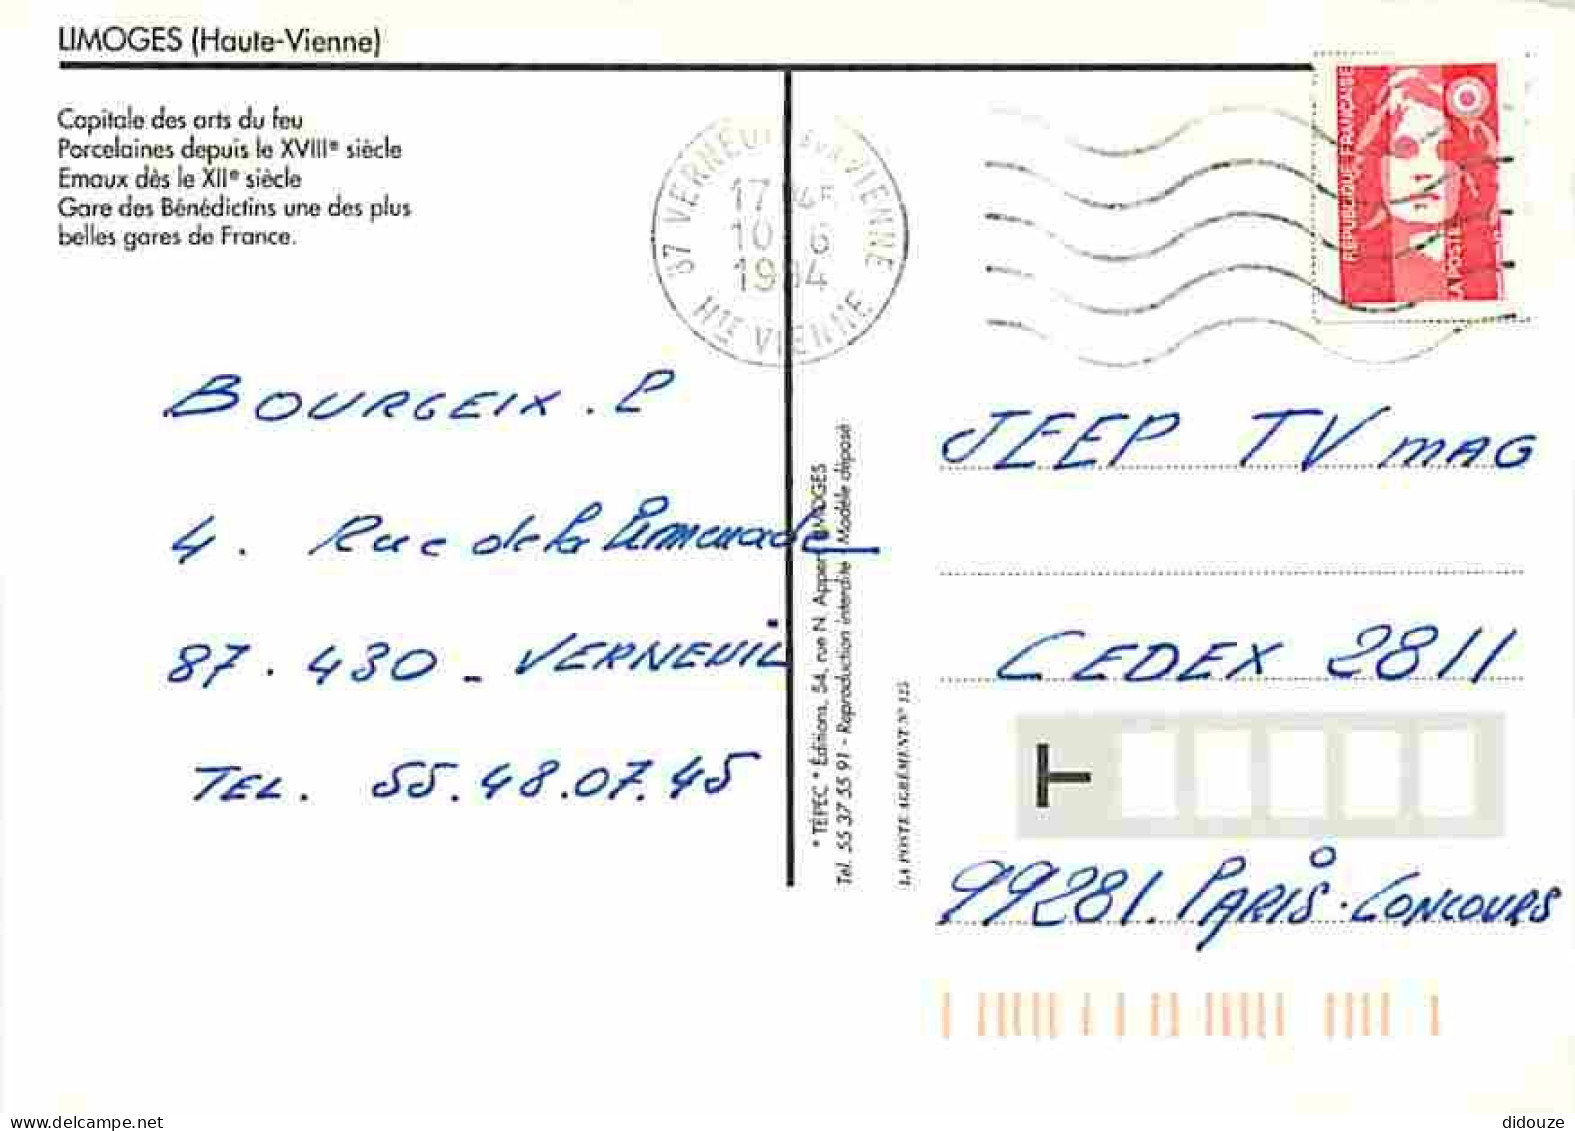 LIMOGES (Haute-Vienne)
Capitale des arts du feu
Porcelaines depuis le XVIIIe siècle
Emaux dès le XIIe siècle
Gare des Bénédictins une des plus
belles gares de France.
87 VERNEUIL SUR VIENNE
17 H 45
10 6
1994
HTE VIENNE
RÉPUBLIQUE FRANÇAISE
LA POSTE
BOURGEIX. P
4. Rue de la
87.430 - VERNEUIL
TEL. 55.48.07.45
* TÉPEC * Éditions, 54, rue N. Appert LIMOGES
Tél. 55 37 55 91 - Reproduction interdite - Modèle déposé
LA POSTE AGRÉMENT N° 125
JEEP TV MAG
CEDEX 2811
99281. PARIS. CONCOURS
didouze